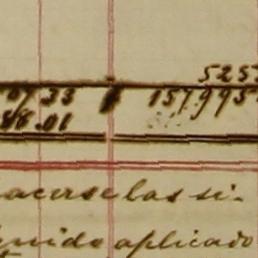 525
33 157995
88.01
acerse las si-
quido aplicado